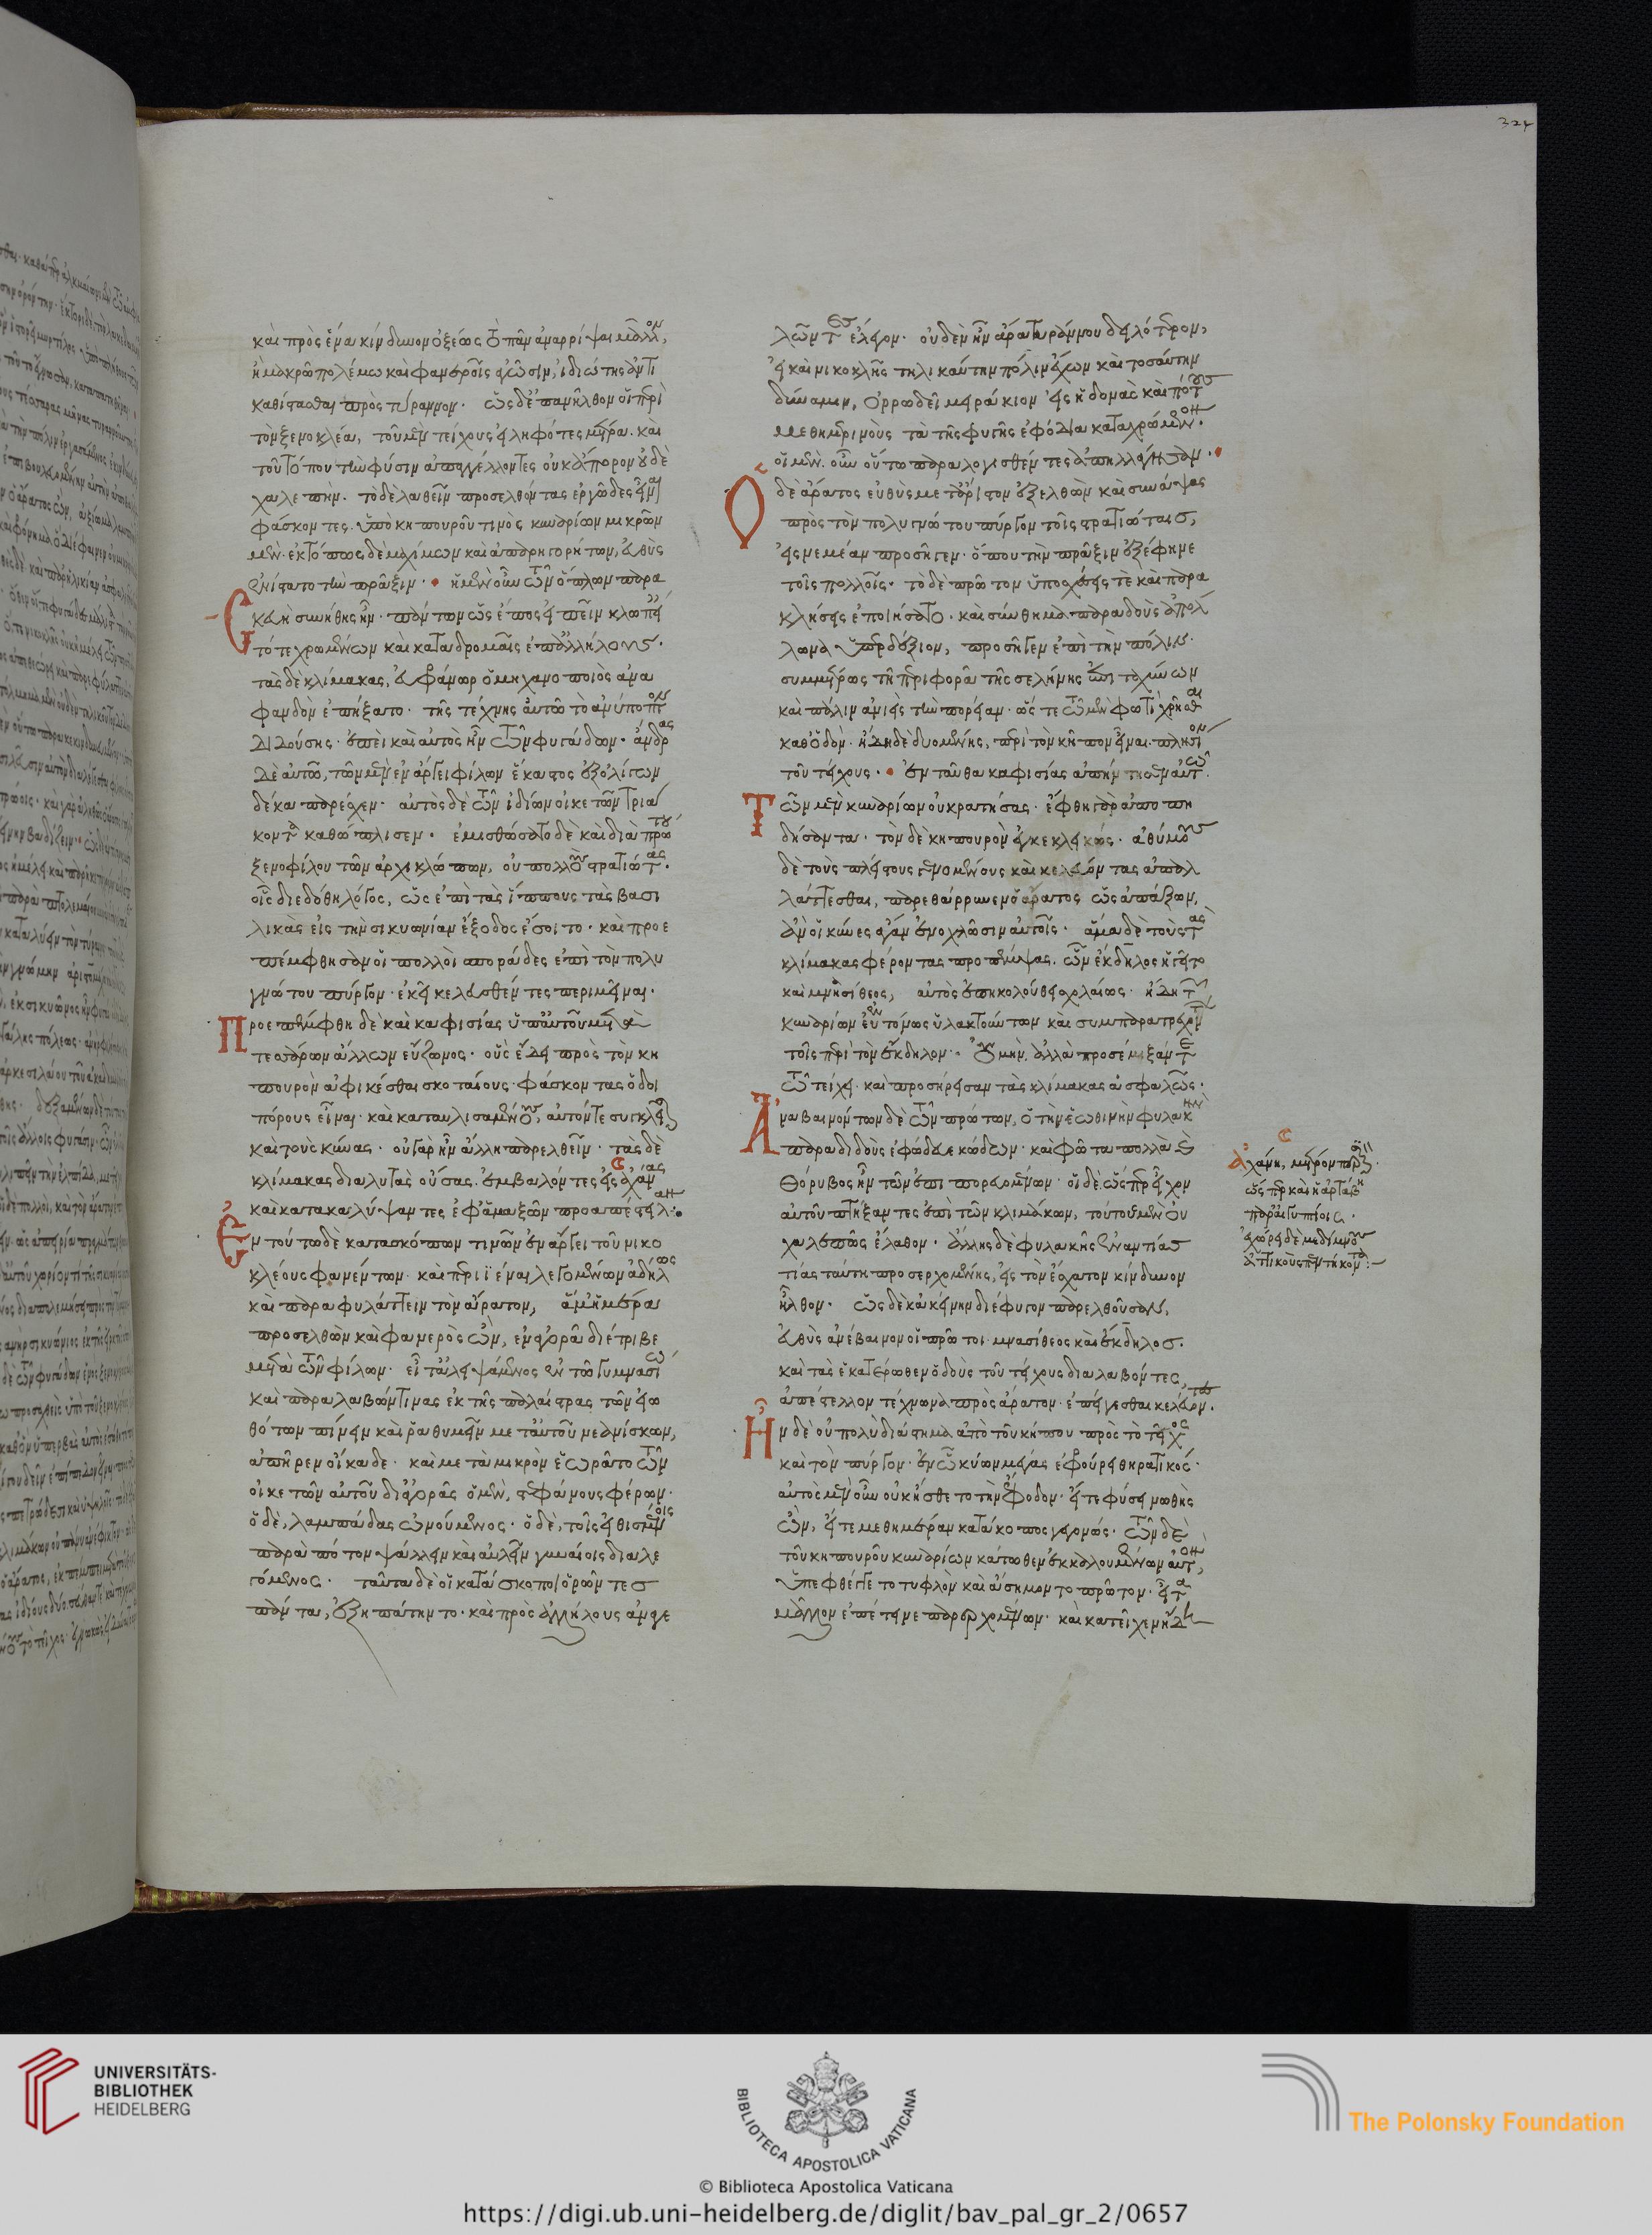 καὶ πρὸς ἕνα κίνδυνον ὀξέως τὸ πᾶν ἀναρρίψαι μᾶλλον,
ἢ μακρῶ πολέμω καὶ φανεροῖς ἀγῶσιν, ἰδιώτης ἀντι
καθίστασθαι πρὸς τύραννον. ὡς δ' ἐπανῆλθον οἱ περὶ
τὸν ξενοκλέα, τοῦ μὲν τείχους εἰληφότες μέτρα. καὶ
τοῦ τόπου τὴν φύσιν ἀπαγγέλλοντες οὐκ ἄπορον οὐδὲ
χαλεπήν. τὸ δὲ λαθεῖν προσελθόντας ἐργῶδες εἶναι
φάσκοντες. ὑπὸ κηπουροῦ τινὸς κυναρίων μικρῶν
μὲν. ἐκτόπως δὲ μαχίμων καὶ ἀπαρηγορήτων, εὐθὺς
ἐνίστατο τὴν πρᾶξιν. ἡ μὲν οὖν τῶν ὅπλων παρα
σκευὴ συνήθης ἦν. πάντων ὡς ἔπος εἰπεῖν κλωπεί
αις τότε χρωμένων καὶ καταδρομαῖς ἐπ' ἀλλήλους.
τὰς δὲ κλίμακας, εὐφράνωρ ὁ μηχανοποιὸς ἀνα
φανδὸν ἐπήξατο. τῆς τέχνης αὐτῶ τὸ ἀνύποπτον
διδούσης. ἐπεὶ καὶ αὐτὸς ἦν τῶν φυγάδων. ἄνδρας
δὲ αὐτῶ, τῶν μὲν ἐν ἄργει φίλων ἕκαστος ἐξ ὀλίγων
δέκα παρέσχεν. αὐτὸς δὲ τῶν ἰδίων οἰκετῶν τριά
κοντα καθώπλισεν. ἐμισθώσατο δὲ καὶ διὰ πρώτου
ξενοφίλου τῶν ἀρχικλώπων, οὐ πολλοὺς στρατιώτας.
οἷς διεδόθη λόγος, ὡς ἐπὶ τὰς ἵππους τὰς βασι
λικὰς εἰς τὴν σικυωνίαν ἔξοδος ἔσοιτο. καὶ προε
πέμφθησαν οἱ πολλοὶ σποράδες ἐπὶ τὸν πολυ
γνώτου πύργον. ἐκεῖ κελευσθέντες περιμεῖναι.
Προεπέμφθη δὲ καὶ καφισίας ὑπ' αὐτοῦ μετὰ
τεσσάρων ἄλλων εὔζωνος. οὓς ἔδει πρὸς τὸν κη
πουρὸν ἀφικέσθαι σκοταίους. φάσκοντας ὁδοι
πόρους εἶναι. καὶ καταυλισαμένους, αὐτόν τε συγκλεῖσαι
καὶ τοὺς κύνας. οὐ γὰρ ἦν ἄλλη παρελθεῖν. τὰς δὲ
κλίμακας διαλυτὰς οὔσας. ἐμβαλόντες εἰς ἀχάνας
καὶ κατακαλύψαντες ἐφ' ἁμαξῶν προαπέστειλαν.
Ἐν τούτω δὲ κατασκόπων τινῶν ἐν ἄργει τοῦ νικο
κλέους φανέντων. καὶ περιϊέναι λεγομένων ἀδήλως
καὶ παραφυλάττειν τὸν ἄρατον, ἅμ' ἡμέρα
προσελθὼν καὶ φανερὸς ὢν, ἐν ἀγορᾶ διέτριβε
μετὰ τῶν φίλων. εἶτ' ἀλειψάμενος ἐν τῶ γυμνασίω
καὶ παραλαβών τινας ἐκ τῆς παλαίστρας τῶν εἰω
θότων πίνειν καὶ ῥαθυμεῖν μετ' αὐτοῦ νεανίσκων,
ἀπῆρεν οἴκαδε. καὶ μετὰ μικρὸν ἑωρᾶτο τῶν
οἰκετῶν αὐτοῦ δι' ἀγορᾶς ὁ μὲν, στεφάνους φέρων.
ὁ δὲ, λαμπάδας ὠνούμενος. ὁ δὲ, τοῖς εἰθισμένοις
παρὰ πότον ψάλλειν καὶ αὐλεῖν γυναίοις διαλε
γόμενος. ταῦτα δὲ οἱ κατάσκοποι ὁρῶντες
πάντα, ἐξηπάτηντο. καὶ πρὸς ἀλλήλους ἀνγε
λῶντες ἔλεγον. οὐδὲν ἦν ἄρα τυράννου δειλότερον,
εἰ καὶ νικοκλῆς τηλικαύτην πόλιν ἔχων καὶ τοσαύτην
δύναμιν, ὀρρωδεῖ μειράκιον εἰς ἡδονὰς καὶ πότους
μεθημερινοὺς τὰ τῆς φυγῆς ἐφόδια καταχρώμενον.
οἱ μὲν. οὖν οὕτω παραλογισθέντες ἀπηλλάγησαν.
Ὁ δὲ ἄρατος εὐθὺς μετ' ἄριστον ἐξελθὼν καὶ συνάψας
πρὸς τὸν πολυγνώτου πύργον τοῖς στρατιώταις,
εἰς νεμέαν προσῆγεν. ὅπου τὴν πρᾶξιν ἐξέφηνε
τοῖς πολλοῖς. τὸ δὲ πρῶτον ὑποσχέσεις τὲ καὶ παρα
κλήσεις ἐποιήσατο. καὶ σύνθημα παραδοὺς ἀπόλ
λωνα ὑπερδέξιον, προσῆγεν ἐπὶ τὴν πόλιν.
συμμέτρως τῆ περιφορᾶ τῆς σελήνης ἐπιταχύνων
καὶ πάλιν ἀνιεὶς τὴν πορείαν. ὥστε τῶ μὲν φωτὶ χρῆσθαι
καθ' ὁδὸν. ἤδη δὲ δυομένης, περὶ τὸν κῆπον εἶναι πλησίον
τοῦ τείχους. ἐνταῦθα καφισίας ἀπήντησεν αὐτῶ.
Τῶν μὲν κυναρίων οὐ κρατήσας. ἔφθη γὰρ ἀποπη
δήσαντα. τὸν δὲ κηπουρὸν ἐγκεκλεικώς. ἀθύμους
δὲ τοὺς πλείστους γενομένους καὶ κελεύοντας ἀπαλ
λάττεσθαι, παρεθάρρυνεν ὁ ἄρατος ὡς ἀπάξων,
ἂν οἱ κύνες ἄγαν ἐνοχλῶσιν αὐτοῖς. ἅμα δὲ τοὺς τὰς
κλίμακας φέροντας προπέμψας. ὧν ἔκδηλος ἡγεῖτο
καὶ μνησίθεος, αὐτὸς ἐπηκολούθει σχολαίως. ἤδη τῶν
κυναρίων εὐτόνως ὑλακτούντων καὶ συμπαρατρεχόντων
τοῖς περὶ τὸν ἔκδηλον. οὐ μὴν. ἀλλὰ προσέμιξάν τε
τῶ τείχει. καὶ προσήρεισαν τὰς κλίμακας ἀσφαλῶς.
Ἀναβαινόντων δὲ τῶν πρώτων, ὁ τὴν ἑωθινὴν φυλακὴν
παραδιδοὺς ἐφώδευε κώδωνι. καὶ φῶτα πολλὰ καὶ
θόρυβος ἦν τῶν ἐπιπορευομένων. οἱ δὲ, ὡς περ εἶχον
αὐτοῦ πτήξαντες ἐπὶ τῶν κλιμάκων, τούτους μὲν οὐ
χαλεπῶς ἔλαθον. ἄλλης δὲ φυλακῆς ἐναντίας
τίας ταύτη προσερχομένης, εἰς τὸν ἔσχατον κίνδυνον
ἦλθον. ὡς δὲ κἀκείνην διέφυγον παρελθοῦσαν,
εὐθὺς ἀνέβαινον οἱ πρῶτοι. μνασίθεος καὶ ἔκδηλος.
καὶ τὰς ἑκατέρωθεν ὁδοὺς τοῦ τείχους διαλαβόντες,
ἀπέστελλον τέχνωνα πρὸς ἄρατον. ἐπείγεσθαι κελεύοντες.
Ἦν δὲ οὐ πολὺ διάστημα ἀπὸ τοῦ κήπου πρὸς τὸ τεῖχος
καὶ τὸν πύργον. ἐν ὧ κύων μέγας ἐφρούρει θηρατικός.
αὐτὸς μὲν οὖν οὐκ ἤσθετο τὴν ἔφοδον. εἴτε φύσει νωθὴς
ὢν, εἴτε μεθ' ἡμέραν κατάκοπος γεγονώς. τῶν δὲ
τοῦ κηπουροῦ κυναρίων κάτωθεν ἐκκαλουμένων αὐτὸν,
ὑπεφθέγγετο τυφλὸν καὶ ἄσημον τὸ πρῶτον. εἶτα
μᾶλλον ἐπέτεινε παρερχομένων. καὶ κατεῖχεν ἤδη
ἀχάνη, μέτρον
ὥσπερ καὶ ἡ ἀρτάβη
παρ' αἰγυπτίοις.
ἐχώρει δὲ μεδίμνους
ἀττικοὺς πεντήκοντα:
324
UNIVERSITÄTS-
BIBLIOTHEK
HEIDELBERG
BIBLIOTECA APOSTOLICA VATICANA
The Polonsky Foundation
© Biblioteca Apostolica Vaticana
https://digi.ub.uni-heidelberg.de/diglit/bav_pal_gr_2/0657